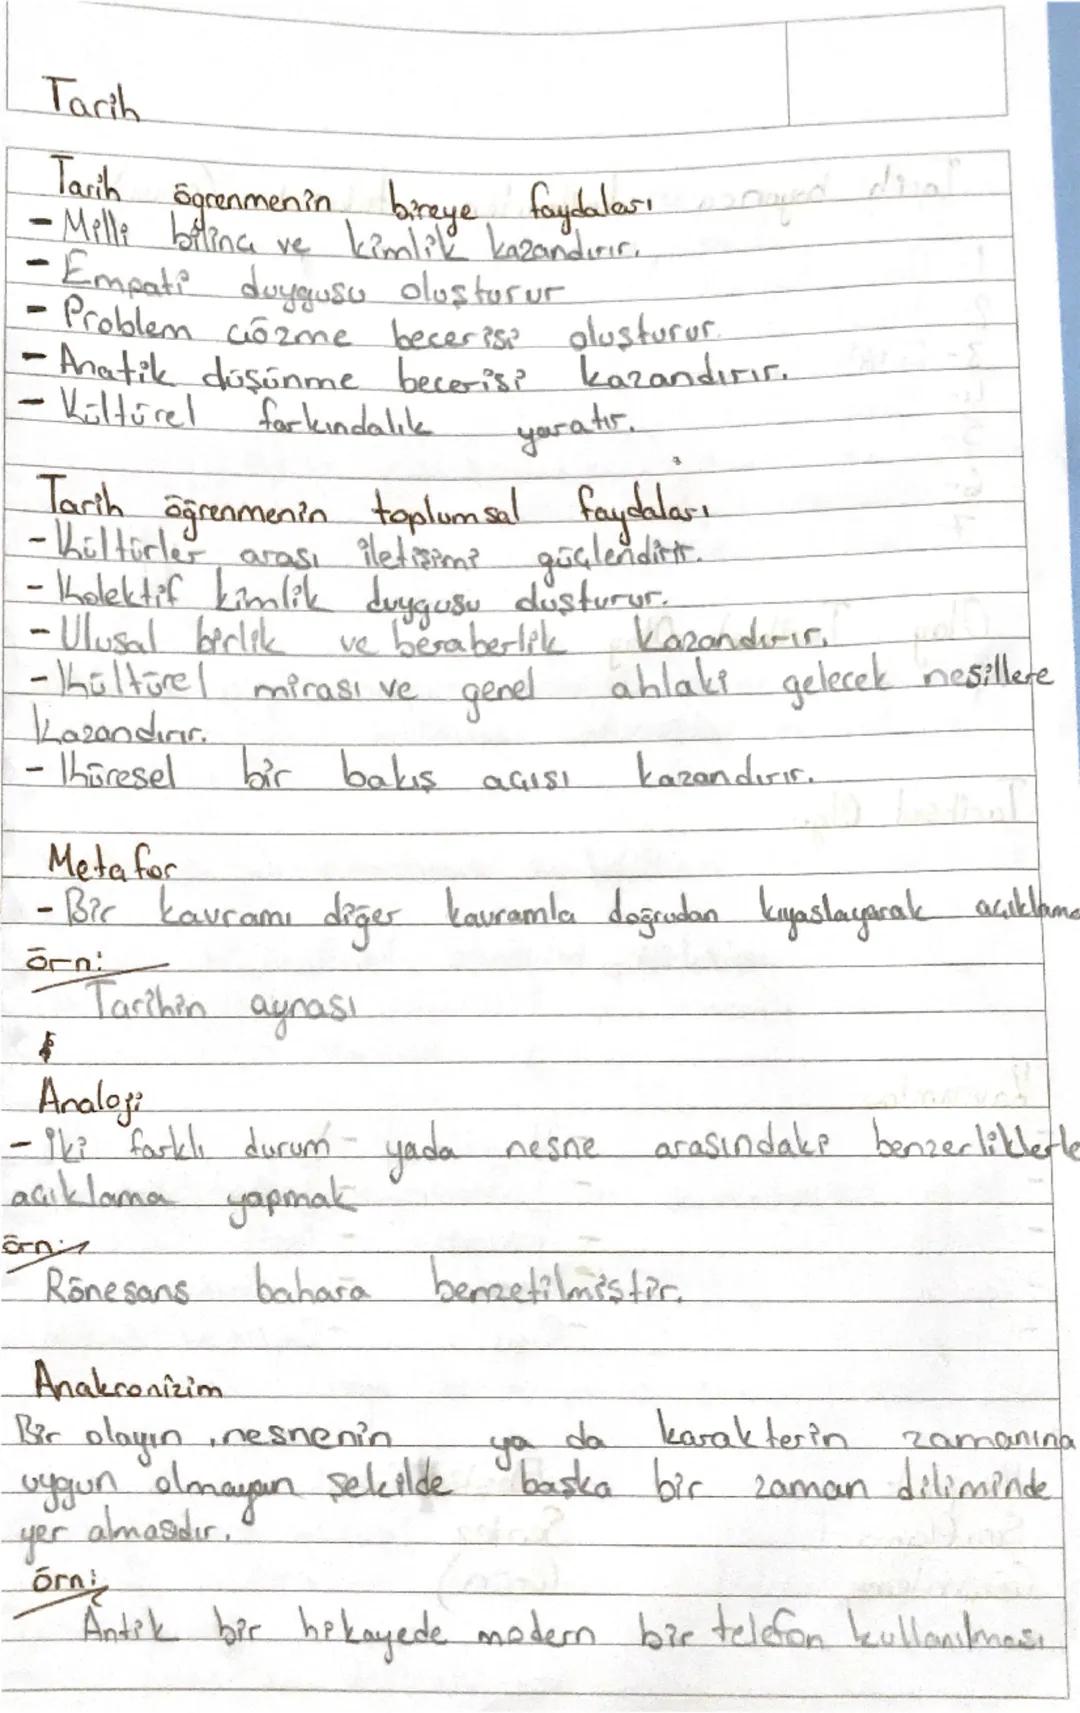 Tarih
Tarih öğrenmenin bireye faydaları
- Milli bilinç ve kimlik kazandırır.
- Empati duygusu oluşturur
- Problem çözme becerisi oluşturur.
- Anatik düşünme becerisi kazandırır.
- Kültürel farkındalık yaratır.
Tarih öğrenmenin toplumsal faydaları
- Kültürler arası iletişimi güçlendirir.
- Kolektif kimlik duygusu oluşturur.
- Ulusal birlik ve beraberlik kazandırır.
- Kültürel mirası ve genel ahlaki gelecek nesillere
kazandırır.
- Küresel bir bakış açısı kazandırır.
Metafor
- Bir kavramı diğer kavramla doğrudan kıyaslayarak açıklama
örn:
Tarihin aynası
Analoji
- iki farklı durum yada nesne arasındaki benzerliklerle
açıklama yapmak
örn:
Rönesans bahara benzetilmiştir.
Anakronizim
Bir olayın, nesnenin ya da karakterin zamanına
uygun olmayan şekilde başka bir zaman diliminde
yer almasıdır.
örn:
Antik bir hikayede modern bir telefon kullanılması